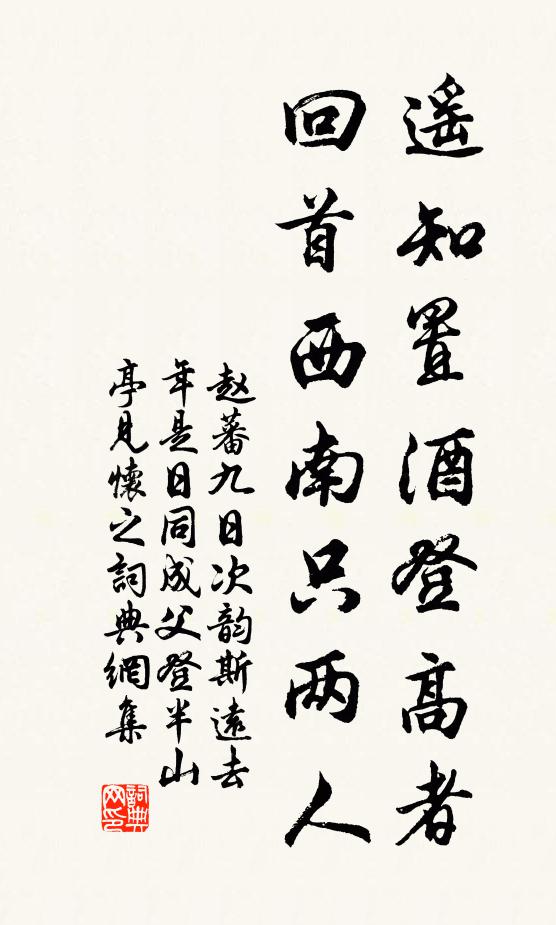 遥知置酒登高者
回首西南只两人
赵蕃九日次韵斯遠去
年是日同成父登半山
亭見懷之詞典網集
詞典
网印